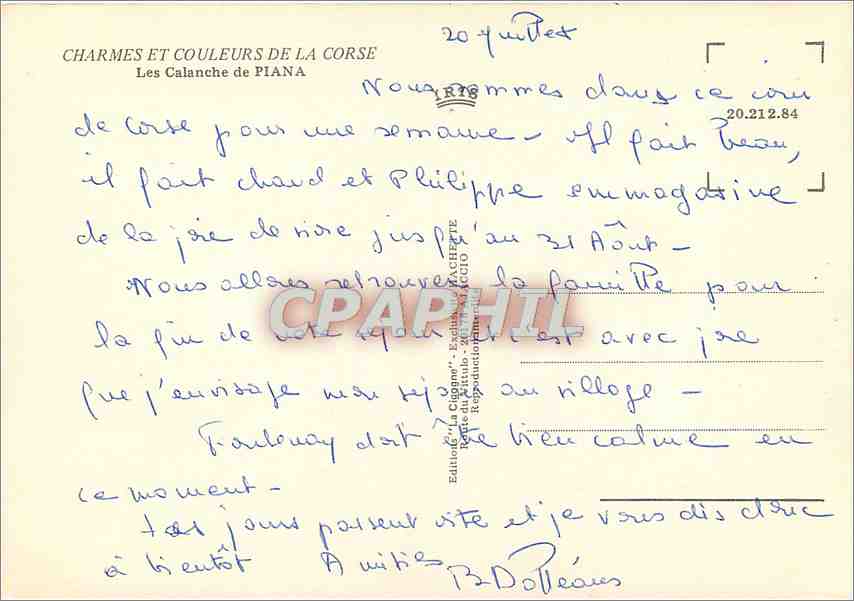 20 juillet
CHARMES ET COULEURS DE LA CORSE
Les Calanche de PIANA
IRIS
20.212.84
Nous sommes dans ce coin
de Corse pour une semaine - Il fait beau,
il fait chaud et Philippe emmagasine
de la joie de vivre jusqu'au 31 Août -
Nous allons retrouver la famille pour
la fin de notre séjour et c'est avec joie
que j'envisage mon séjour au village -
Fontenay doit être bien calme en
ce moment -
Les jours passent vite et je vous dis donc
à bientôt Amitiés
Editions "La Cigogne" - Exclusivité HACHETTE
Route du Vittulo - 20178 AJACCIO
Reproduction interdite
CPAPHIL